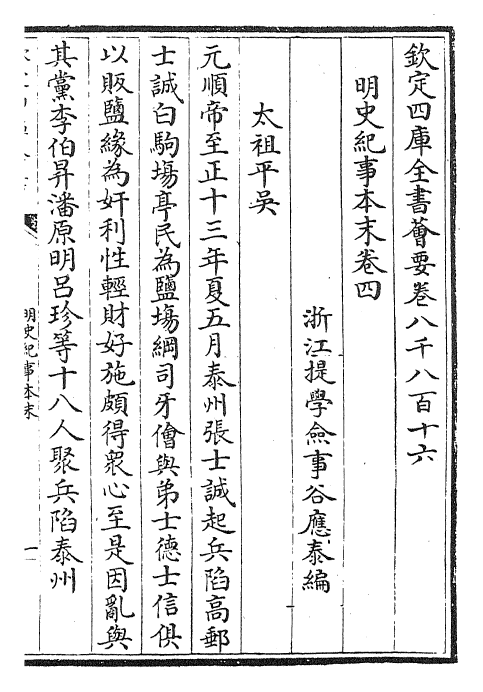 欽定四庫全書薈要卷八千八百十六
明史紀事本末卷四
浙江提學僉事谷應泰編
太祖平吳
元順帝至正十三年夏五月泰州張士誠起兵陷高郵
士誠白駒塲亭民為鹽塲綱司牙儈與弟士德士信俱
以販鹽緣為奸利性輕財好施頗得衆心至是因亂與
其黨李伯昇潘原明呂珍等十八人聚兵陷泰州
明史紀事本末
一